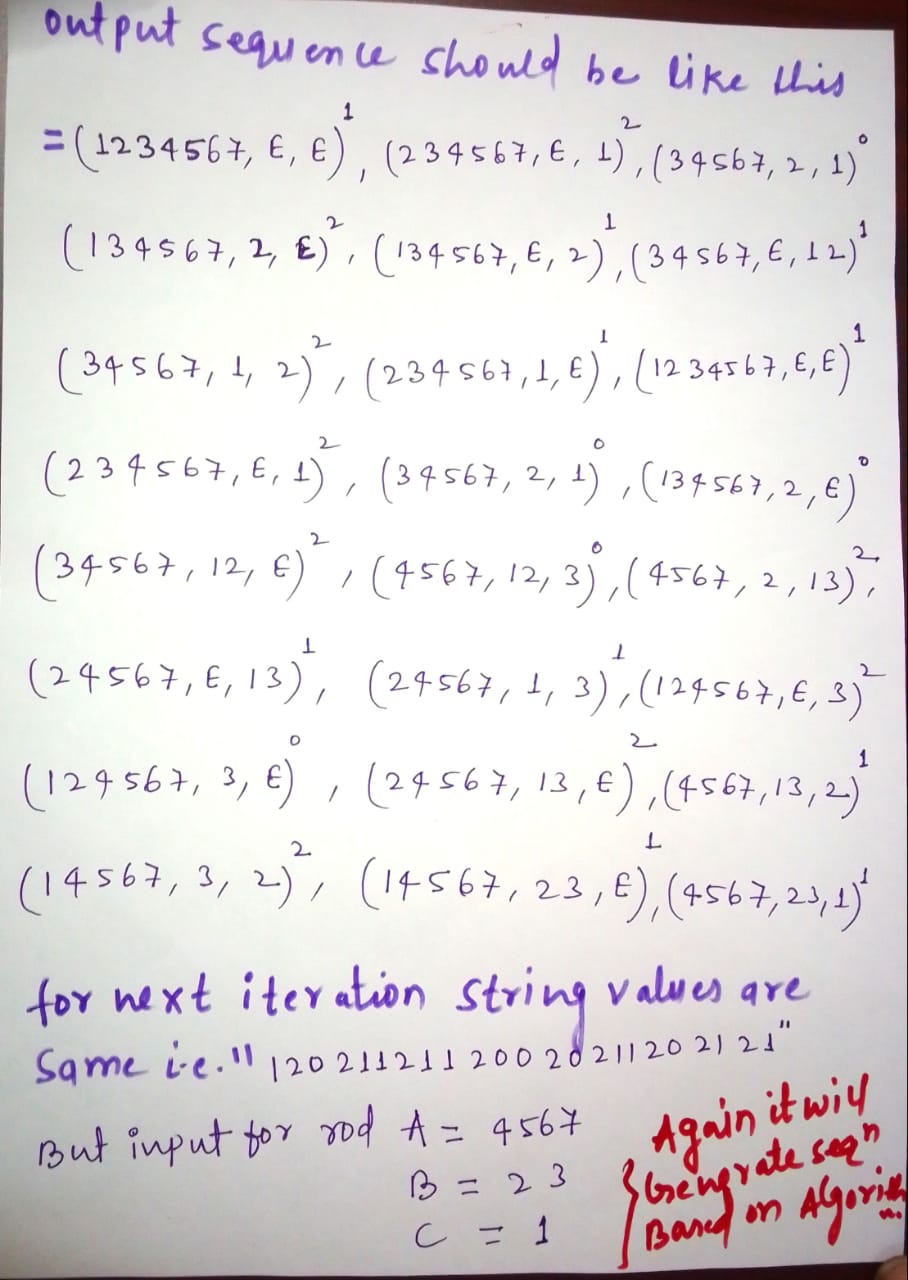 output sequence should be like this
= (1234567, ε, ε)¹, (234567, ε, 1)², (34567, 2, 1)⁰
(134567, 2, ε)², (134567, ε, 2)¹, (34567, ε, 12)¹
(34567, 1, 2)², (234567, 1, ε)¹, (1234567, ε, ε)¹
(234567, ε, 1)², (34567, 2, 1)⁰, (134567, 2, ε)⁰
(34567, 12, ε)², (4567, 12, 3)⁰, (4567, 2, 13)²,
(24567, ε, 13)¹, (24567, 1, 3)¹, (124567, ε, 3)²
(124567, 3, ε)⁰, (24567, 13, ε)², (4567, 13, 2)¹
(14567, 3, 2)², (14567, 23, ε)¹, (4567, 23, 1)¹
for next iteration string values are
same i.e. "12021121120020211202121"
But input for rod A = 4567
B = 23
C = 1
Again it will
Generate seqⁿ
Based on Algorithm.